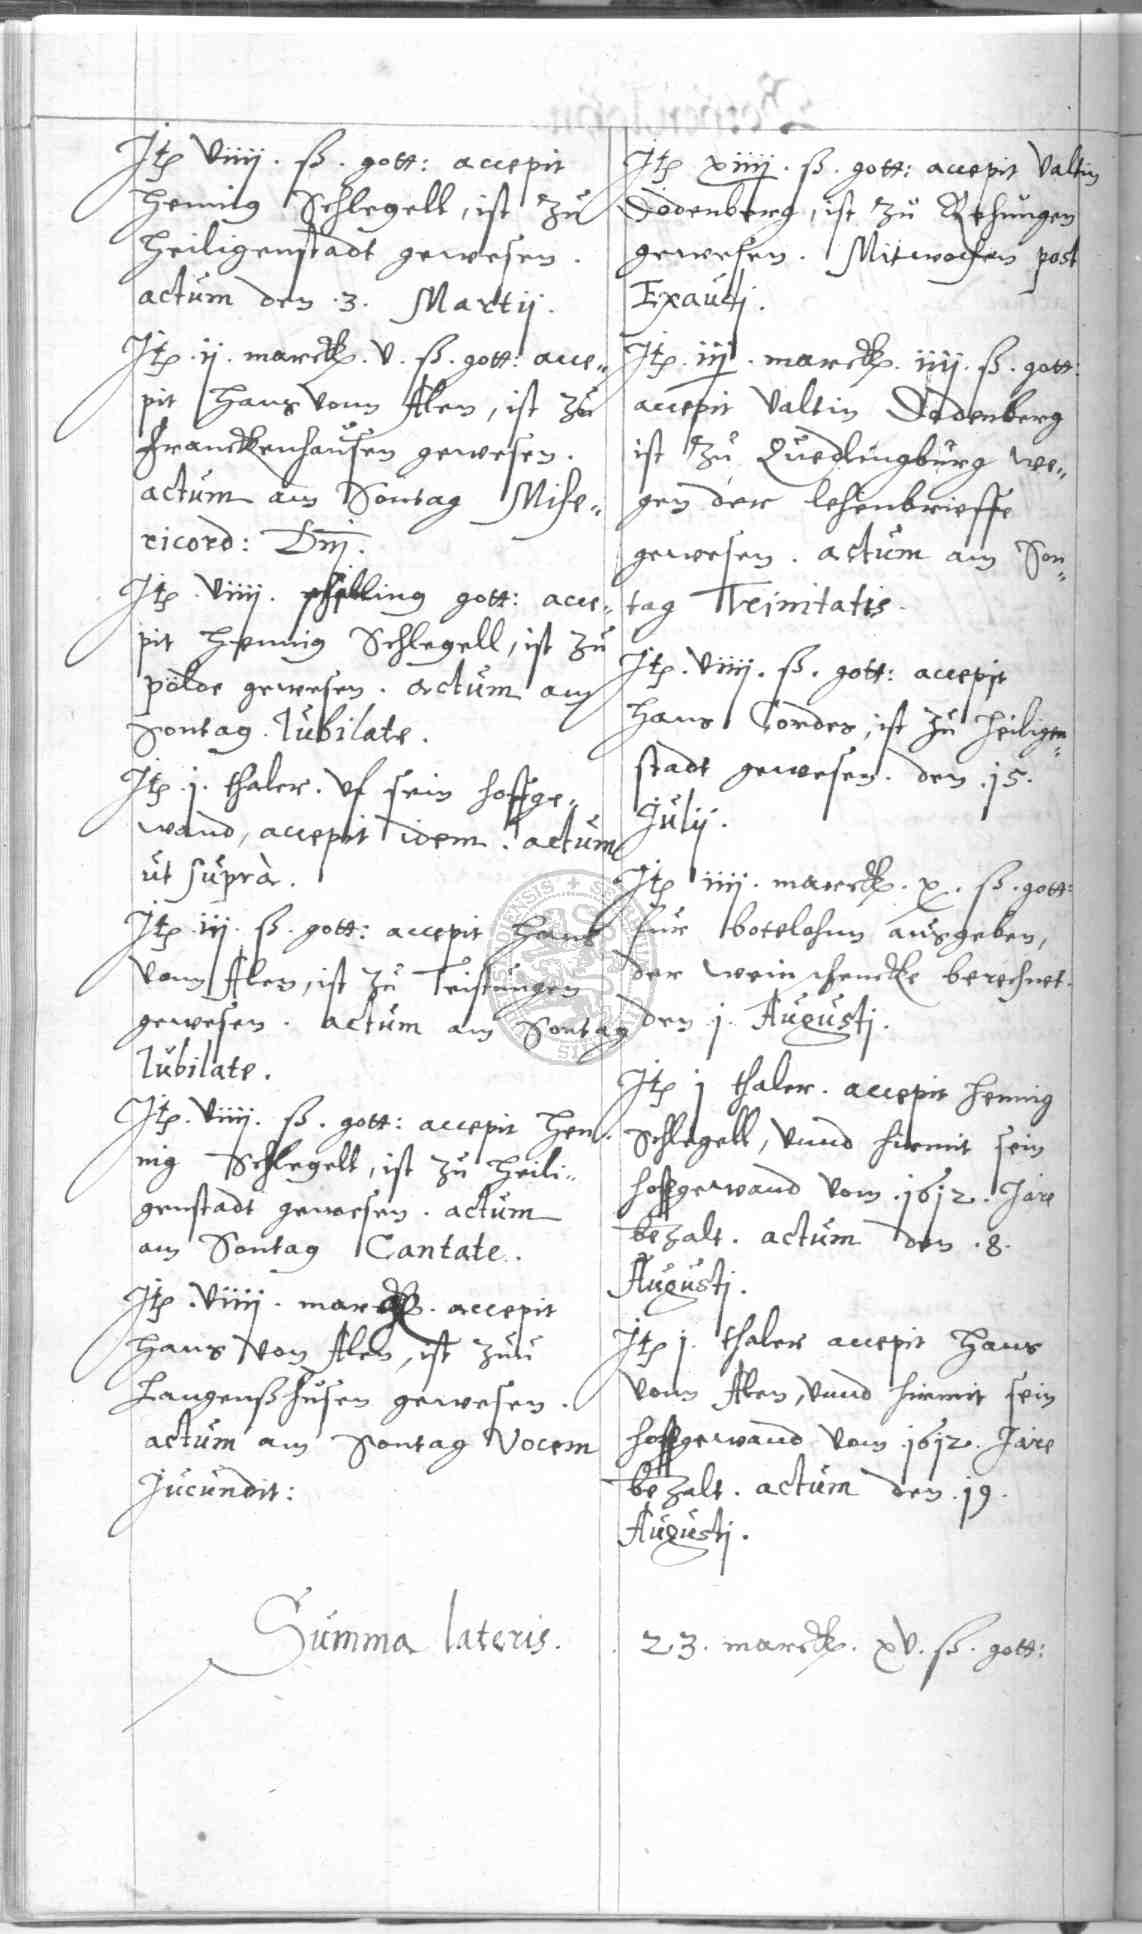 Itp viiij. ß. gott: accepit
Hennig Schlegell, ist zu
Heiligenstadt gewesen.
actum den .3. Martij.
Itp .ij. marckk. v. ß. gott: acce„
pit Hans vonn Alen, ist zu
Franckenhausen gewesen.
actum am Sontag Mise„
ricord: Dnj.
Itp .viiij. schilling gott: acce„
pit Hennig Schlegell, ist zu
pölde gewesen. actum am
Sontag Iubilate.
Itp .j. thaler. vf sein hoffge„
wand, accepit idem. actum
ut suprà.
Itp .iij. ß. gott: accepit Hans
vonn Alen, ist zu Teistungen
gewesen. actum am Sontag
Iubilate.
Itp .viiij. ß. gott: accepit Hen„
nig Schlegell, ist zu Heili„
genstadt gewesen. actum
am Sontag Cantate.
Itp .viiij. marckk. accepit
Hans von Alen, ist zuu
Langenßhusen gewesen.
actum am Sontag Vocem
Jucundit:
Itp xiiij. ß. gott: accepit Valtin
Dodenberg, ist zu Rehungen
gewesen. Mitwochen post
Exaudj.
Itp .iij. marckk. iiij. ß. gott:
accepit Valtin Dodenberg
ist zu Quedlingburg we„
gen der lehenbrieffe
gewesen. actum am Son„
tag Trinitatis.
Itp .viiij. ß. gott: accepit
Hans Cordes, ist zu Heiligen„
stadt gewesen. den .15.
Julij.
Itp iiij. marckk. x. ß. gott:
fur bottlohnn ausgeben,
der weinschencke berechnet.
den .j. Augustj.
Itp j thaler. accepit Hennig
Schlegell, vnnd hiemit sein
hoffgewand vom .1612. Jare
bezalt. actum den .8.
Augustj.
Itp j. thaler accepit Hans
vonn Alen, vnnd hiemit sein
hoffgewand vom .1612. Jare
bezalt. actum den .19.
Augustj.
Summa lateris. 23. marckk. xv. ß. gott: